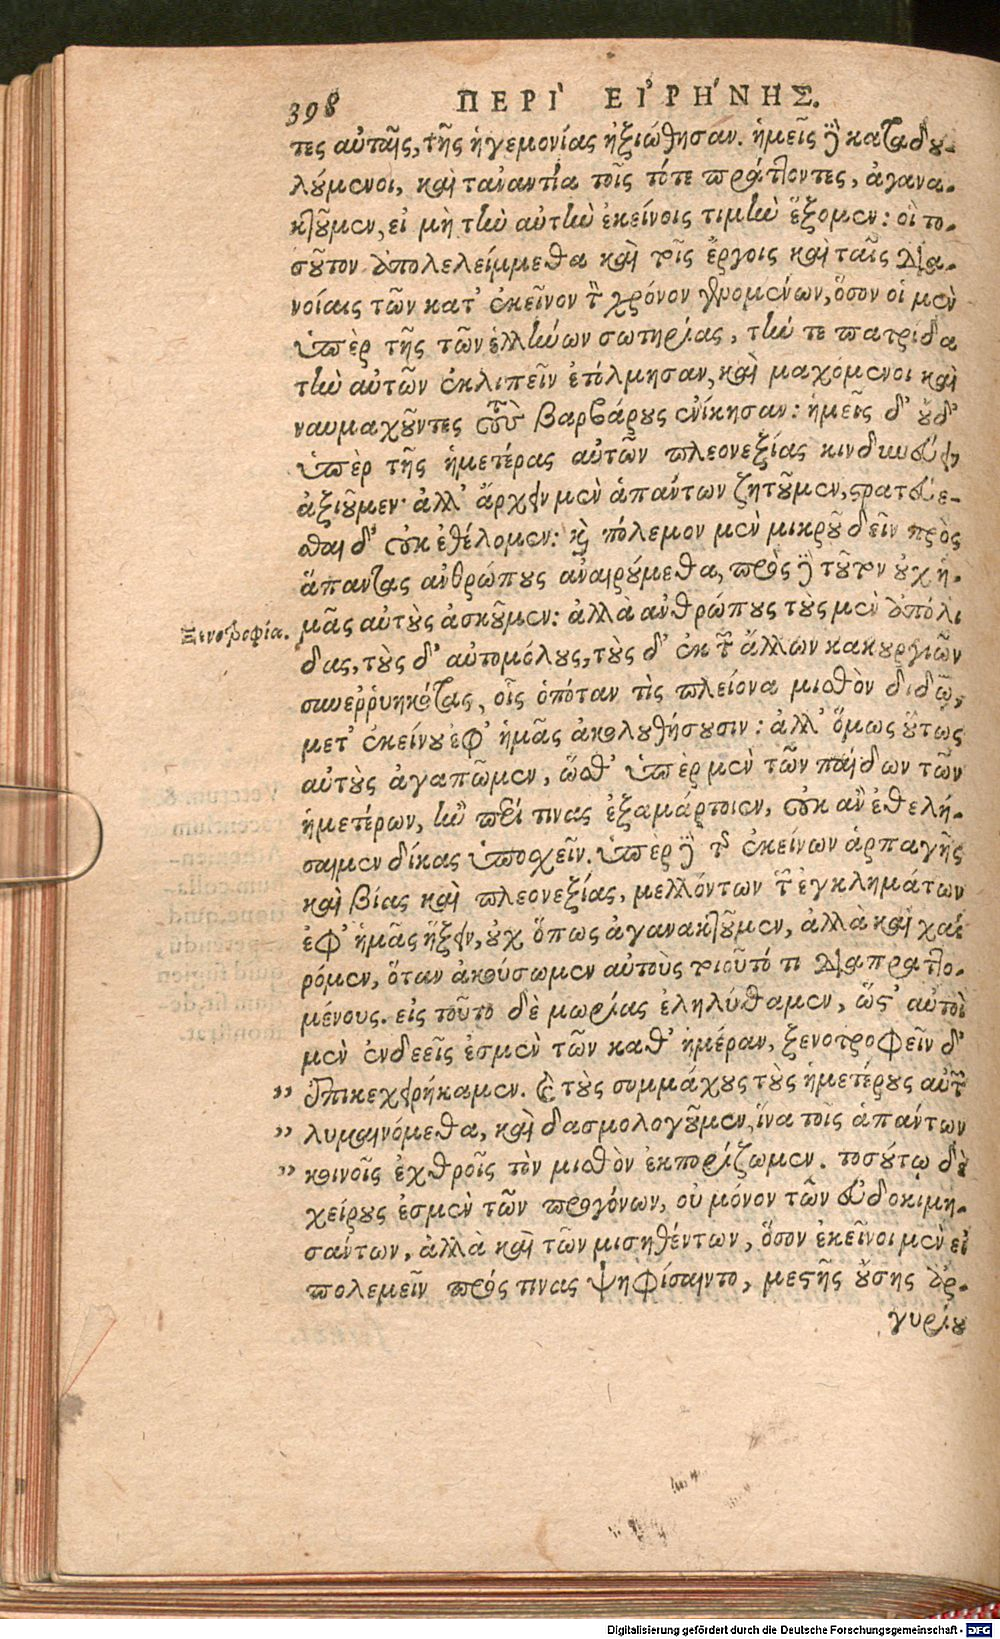 398 ΠΕΡΙ` ΕΙ᾿ΡΗ΄ΝΗΣ.
τες αὐταῖς, τῆς ἡγεμονίας ἠξιώθησαν. ἡμεῖς ϳ καταδου-
λούμενοι, καὶ τἀναντία τοῖς τότε πράττοντες, ἀγανα-
κτοῦμεν, εἰ μὴ τὴν αὐτὴν ἐκείνοις τιμὴν ἕξομεν: οἳ το-
σοῦτον ἀπολελείμμεθα καὶ τοῖς ἔργοις καὶ ταῖς δια-
νοίαις τῶν κατ' ἐκεῖνον τὸν χρόνον γενομένων, ὅσον οἱ μὲν
ὑπὲρ τῆς τῶν ἑλλήνων σωτηρίας, τήν τε πατρίδα
τὴν αὐτῶν ἐκλιπεῖν ἐτόλμησαν, καὶ μαχόμενοι καὶ
ναυμαχοῦντες τοὺς βαρβάρους ἐνίκησαν: ἡμεῖς δ' οὐδ'
ὑπὲρ τῆς ἡμετέρας αὐτῶν πλεονεξίας κινδυνεύειν
ἀξιοῦμεν· ἀλλ' ἄρχειν μὲν ἁπάντων ζητοῦμεν, στρατεύε-
σθαι δ' οὐκ ἐθέλομεν: καὶ πόλεμον μὲν μικροῦ δεῖν πρὸς
ἅπαντας ἀνθρώπους ἀναιρούμεθα, πρὸς δὲ τοῦτον οὐχ ἡ-
μᾶς αὐτοὺς ἀσκοῦμεν: ἀλλὰ ἀνθρώπους τοὺς μὲν ἀπόλι
Ξενοτροφία.
δας, τοὺς δ' αὐτομόλους, τοὺς δ' ἐκ τῶν ἄλλων κακουργιῶν
συνερρυηκότας, οἷς ὁπόταν τὶς πλείονα μισθὸν διδῷ,
μετ' ἐκείνου ἐφ' ἡμᾶς ἀκολουθήσουσιν: ἀλλ' ὅμως οὕτως
αὐτοὺς ἀγαπῶμεν, ὥσθ' ὑπὲρ μὲν τῶν παίδων τῶν
ἡμετέρων, ἢν περί τινας ἐξαμάρτοιεν, οὐκ ἂν ἐθελή-
σαιμεν δίκας ὑποσχεῖν. ὑπὲρ δὲ τῆς ἐκείνων ἁρπαγῆς
καὶ βίας καὶ πλεονεξίας, μελλόντων τῶν ἐγκλημάτων
ἐφ' ἡμᾶς ἥξειν, οὐχ ὅπως ἀγανακτοῦμεν, ἀλλὰ καὶ χαί
ρομεν, ὅταν ἀκούσωμεν αὐτοὺς τοιοῦτό τι διαπραττο-
μένους. εἰς τοῦτο δὲ μωρίας ἐληλύθαμεν, ὥστ' αὐτοὶ
μὲν ἐνδεεῖς ἐσμὲν τῶν καθ' ἡμέραν, ξενοτροφεῖν δ'
" ἐπικεχειρήκαμεν. καὶ τοὺς συμμάχους τοὺς ἡμετέρους αὐτῶν
" λυμαινόμεθα, καὶ δασμολογοῦμεν, ἵνα τοῖς ἁπάντων
" κοινοῖς ἐχθροῖς τὸν μισθὸν ἐκπορίζωμεν. τοσούτῳ δὲ
χείρους ἐσμὲν τῶν προγόνων, οὐ μόνον τῶν εὐδοκιμη-
σάντων, ἀλλὰ καὶ τῶν μισηθέντων, ὅσον ἐκεῖνοι μὲν εἰ
πολεμεῖν πρός τινας ψηφίσαιντο, μεστῆς οὔσης ἀρ-
γυρίου
Digitalisierung gefördert durch die Deutsche Forschungsgemeinschaft - DFG